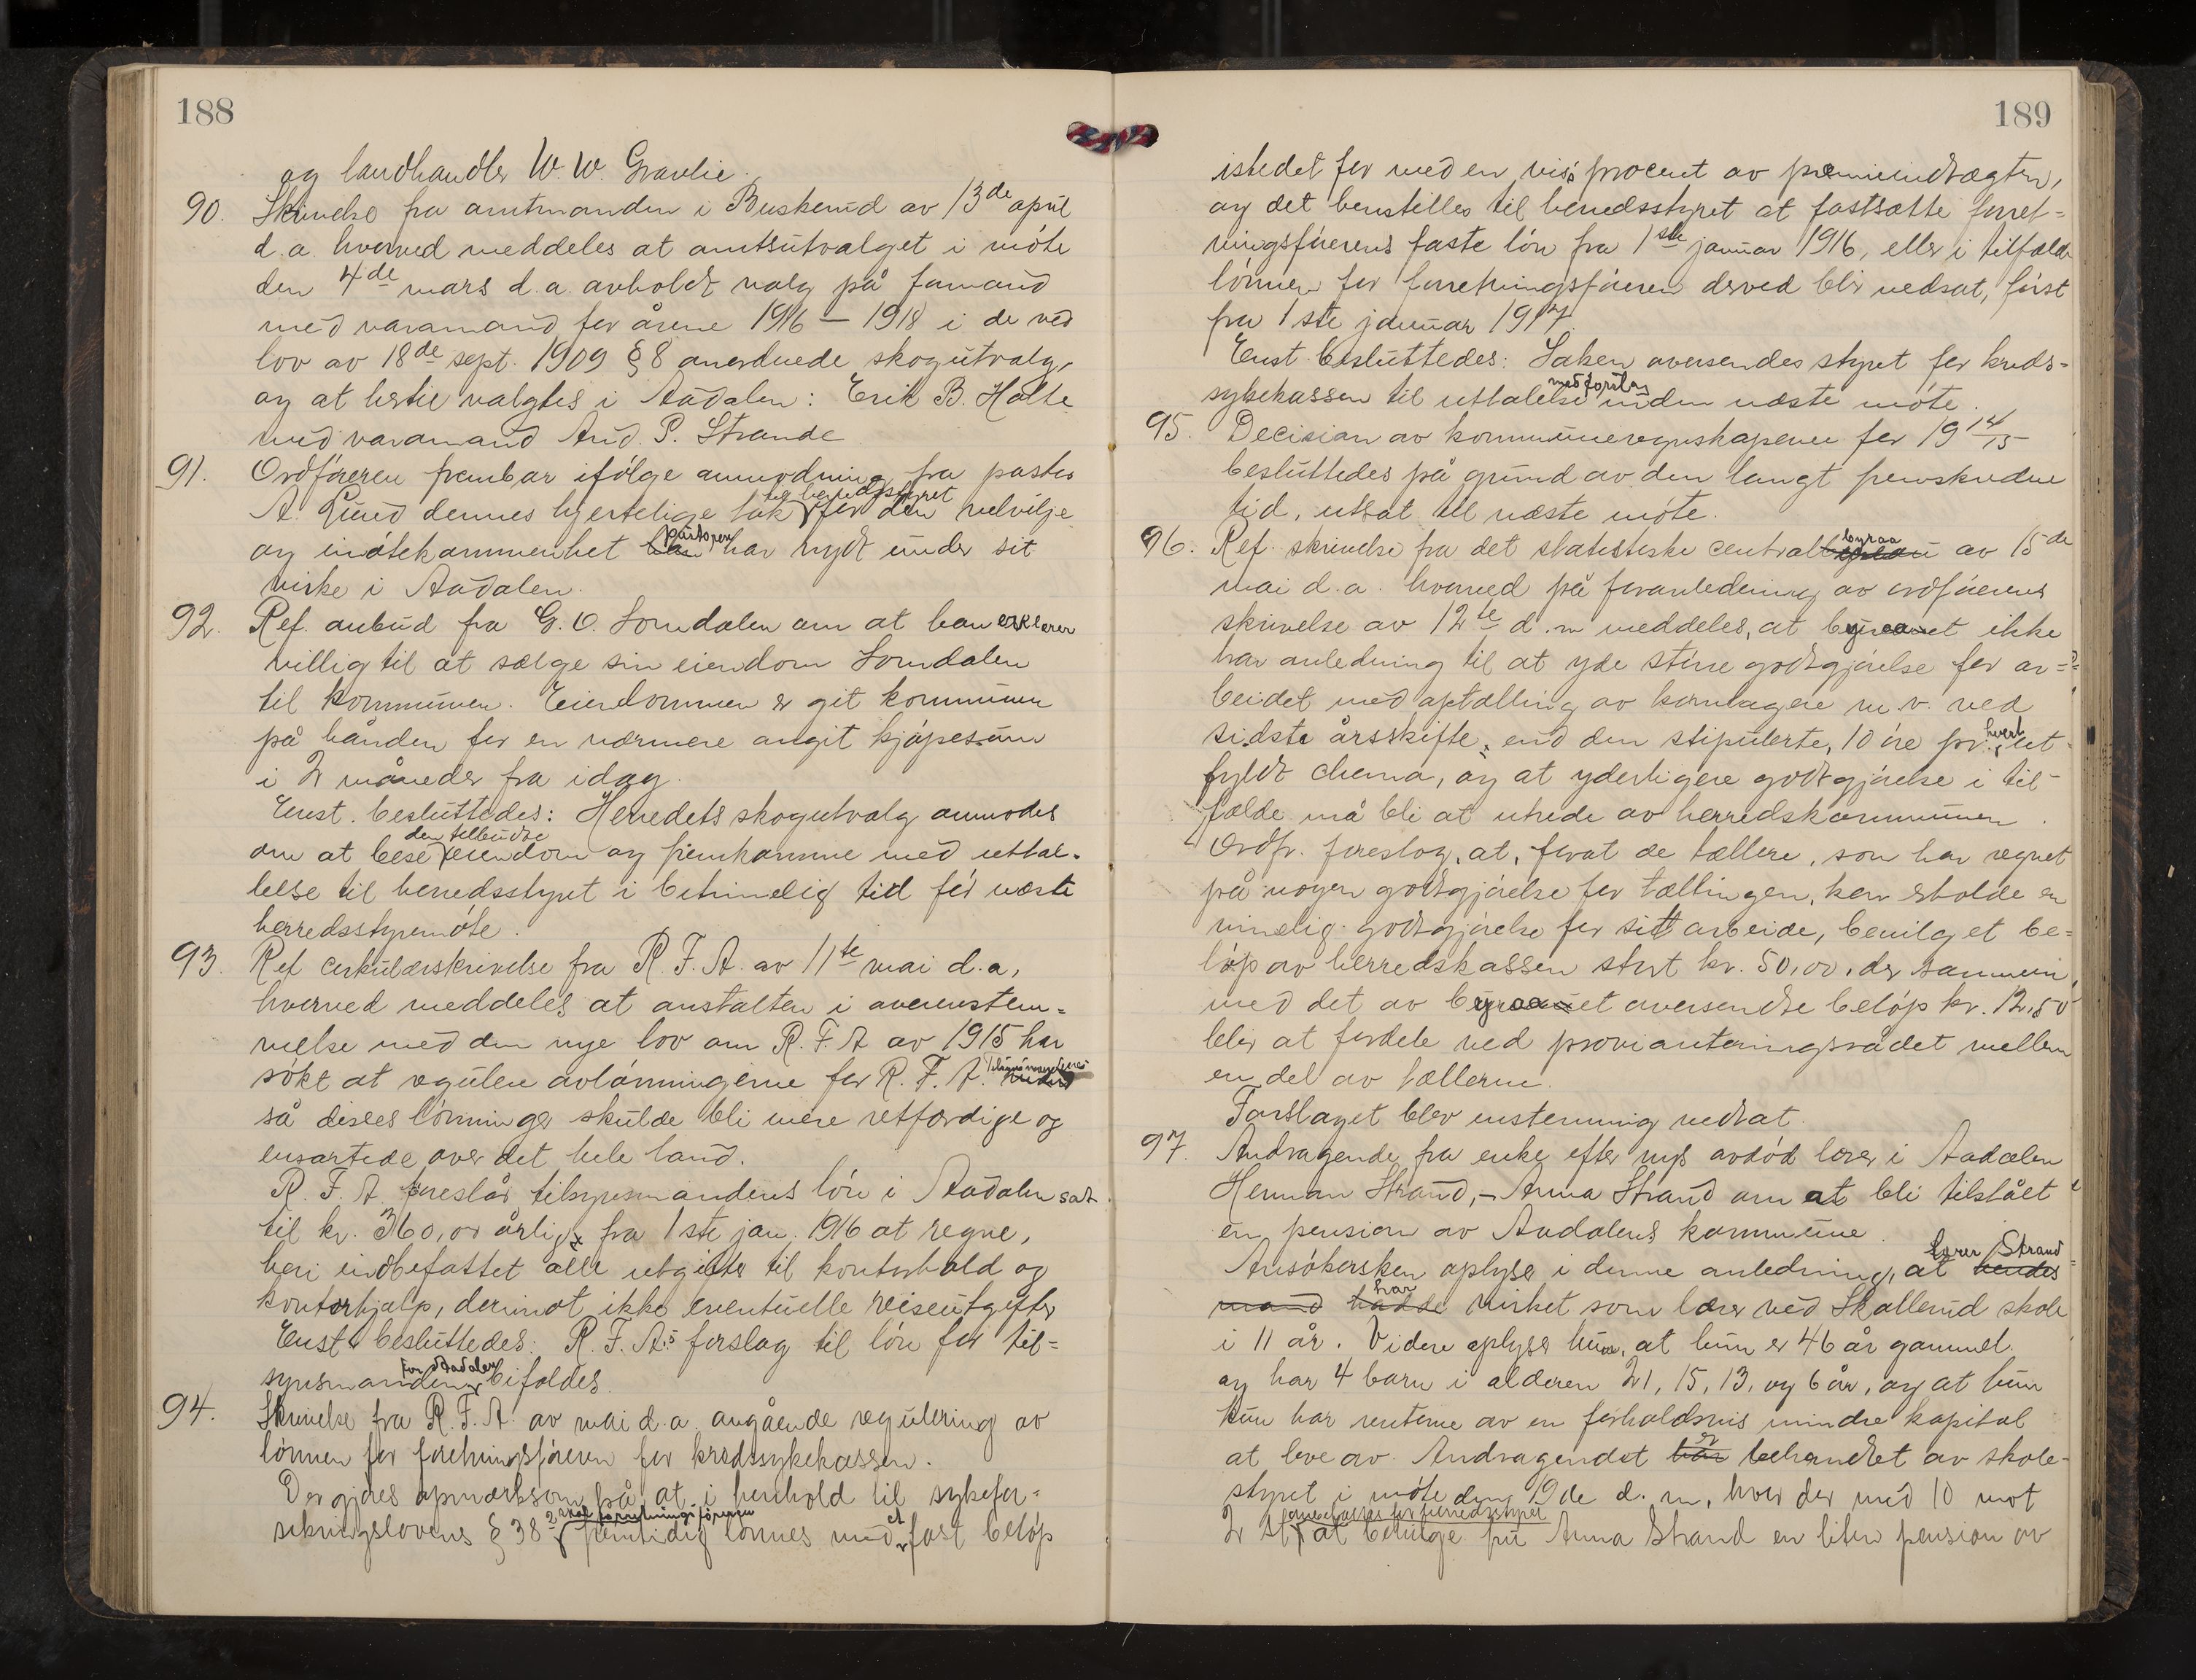 188
og landhandler W. W. Gravlie.
90. Skrivelse fra amtmanden i Buskerud av 13de april
d.a. hvorved meddeles at amtsutvalget i møte
den 4de mars d.a. avholdt valg på formand
med varamand for årene 1916 – 1918 i de ved
lov av 18de sept. 1909 § 8 anordnede skogutvalg,
og at hertil valgtes i Aadalen: Erik B. Holte
med varamand And. P. Strande
91. Ordføreren frembar ifølge anmodning fra pastor
A. Ruud dennes hjertelige tak til herredsstyret for den velvilje
og imøtekommenhet han pastoren har nydt under sit
virke i Aadalen.
92. Ref. anbud fra G. O. Somdalen om at han erklærer
villig til at sælge sin eiendom Somdalen
til kommunen. Eiendommen er git kommunen
på hånden for en nærmere angit kjøpesum
i 2 måneder fra idag.
Enst. besluttedes: Herredets skogutvalg anmodes
om at bese den tilbudte eiendom og fremkomme med uttal-
lelse til herredsstyret i betimelig tid før næste
herredsstyremøte.
93. Ref cirkulærskrivelse fra R. F. A. av 11te mai d.a,
hvorved meddeles at anstalten i overenstem-
melse med den nye lov om R. F. A av 1915 har
søkt at regulere avlønningerne for R. F. A. tilsynsmændenes
så disses lønninger skulde bli mere retfærdige og
ensartede over det hele land.
R. F. A. foreslår tilsynsmandens løn i Aadalen sat
til kr. 360,00 årlig, fra 1ste jan. 1916 at regne,
heri indbefattet alle utgifter til kontorhold og
kontorhjælp, derimot ikke eventuelle reiseutgifter
Enst. besluttedes: R. F. A.s forslag til løn for til-
synsmanden for Aadalen bifaldes.
94. Skrivelse fra R. F. A. av mai d.a. angående regulering av
lønnen for forretningsføreren for kredssykekassen.
Der gjøres opmerksom på at i henhold til sykefor-
sikringslovens § 38 2 skal forretningsføreren fremtidig lønnes med et fast beløp
189
istedet for med en vis procent av præmieindtægten,
og det henstilles til herredsstyret at fastsætte forret-
ningsførerens faste løn fra 1ste januar 1916, eller i tilfælde
lønnen for forretningsføreren derved blir nedsat, først
fra 1ste januar 1917.
Enst. besluttedes: Saken oversendes styret for kreds-
sykekassen til uttalelse med forslag inden næste møte.
95. Decision av kommuneregnskapene for 1914/15
besluttedes på grund av den langt fremskredne
tid, utsat til næste møte.
96. Ref. skrivelse fra det statistiske centralbyraa av 15de
mai d.a. hvorved på foranledning av ordførerens
skrivelse av 12te d.m meddeles, at byraaet ikke
har anledning til at yde større godtgjørelse for ar-
beidet med optælling av kornlagere m.v. ved
sidste årsskifte, end den stipulerte, 10 øre pr. hvert ut-
fyldt chema, og at yderligere godtgjørelse i til-
fælde må bli at utrede av herredskommunen.
Ordfr. foreslog, at, forat de tællere, som har regnet
på nogen godtgjørelse for tællingen, kan erholde en
rimelig godtgjørelse for sit arbeide, bevilget be-
løp av herredskassen stort kr. 50,00, der sammen
med det av byraaet oversendte beløp kr. 12,50
blir at fordele ved provianteringsrådet mellem
en del av tællerne.
Forslaget blev enstemmig vedtat.
97. Andragende fra enke efter nys avdød lærer i Aadalen
Herman Strand, – Anna Strand om at bli tilstået
en pension av Aadalens kommune.
Ansøkersken oplyser i denne anledning, at hendes lærer Strand
mand hadde har virket som lærer ved Skollerud skole
i 11 år. Videre oplyser hun, at hun er 46 år gammel.
og har 4 barn i alderen 21, 15, 13, og 6 år, og at hun
kun har renterne av en forholdsvis mindre kapital
at leve av. Andragendet har er behandlet av skole-
styret i møte den 9de d.m, hvor der med 10 mot
2 st. anbefales for herredsstyret at bevilge fru Anna Strand en liten pension av